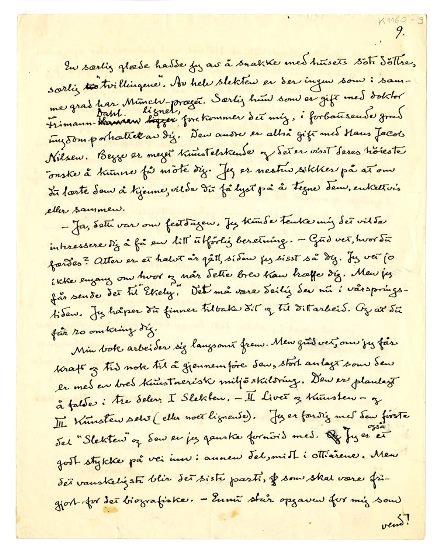 K 1160-9
9.
En særlig glæde hadde jeg av å snakke med husets söte döttre,
særlig "tvillingene". Av hele slekten er der ingen som i sam-
me grad har Munch-præget. Særlig hun som er gift med doktor
Frimann-Dahl, ligner,
forekommer det mig, i forbausende grad
ungdomsportrættet av dig. Den andre er altså gift med Hans Jacob
Nilsen. Begge er meget kunstelskende og det er visst deres höieste
önske å kunne få möte dig. Jeg er nesten sikker på at om
du lærte dem å kjenne, vilde du få lyst på å tegne dem, enkeltvis
eller sammen.
- Ja, dette var om festdagen. Jeg kunde tenke mig det vilde
interessere dig å få en litt utförlig beretning. - Gud vet, hvor du
færdes? Atter er et halvt år gått, siden jeg sisst så dig. Jeg vet jo
ikke engang om hvor og når dette brev kan træffe dig. Men jeg
får sende det til "Ekely". Det må være deilig der nu i vårsprings-
tiden. Jeg håper du finner tilbake dit og til dit arbeid. Og at du
får ro omkring dig.
Min bok arbeider sig langsomt frem. Men gud vet, om jeg får
kraft og tid nok til å gjennemföre den, stort anlagt som den
er med en bred kunstnerisk miljöskildring. Den er planlagt
å falde i tre deler: I Slekten. - II Livet og kunsten - og
III Kunsten selv (eller noet lignende). Jeg er færdig med den förste
del "Slekten" og den er jeg ganske fornöid med. Jeg er også et
godt stykke på vei inn i annen del, midt i ottiårene. Men
det vanskeligste blir det siste parti, som skal være fri-
gjort for det biografiske. - Ennu står opgaven for mig som
vend!